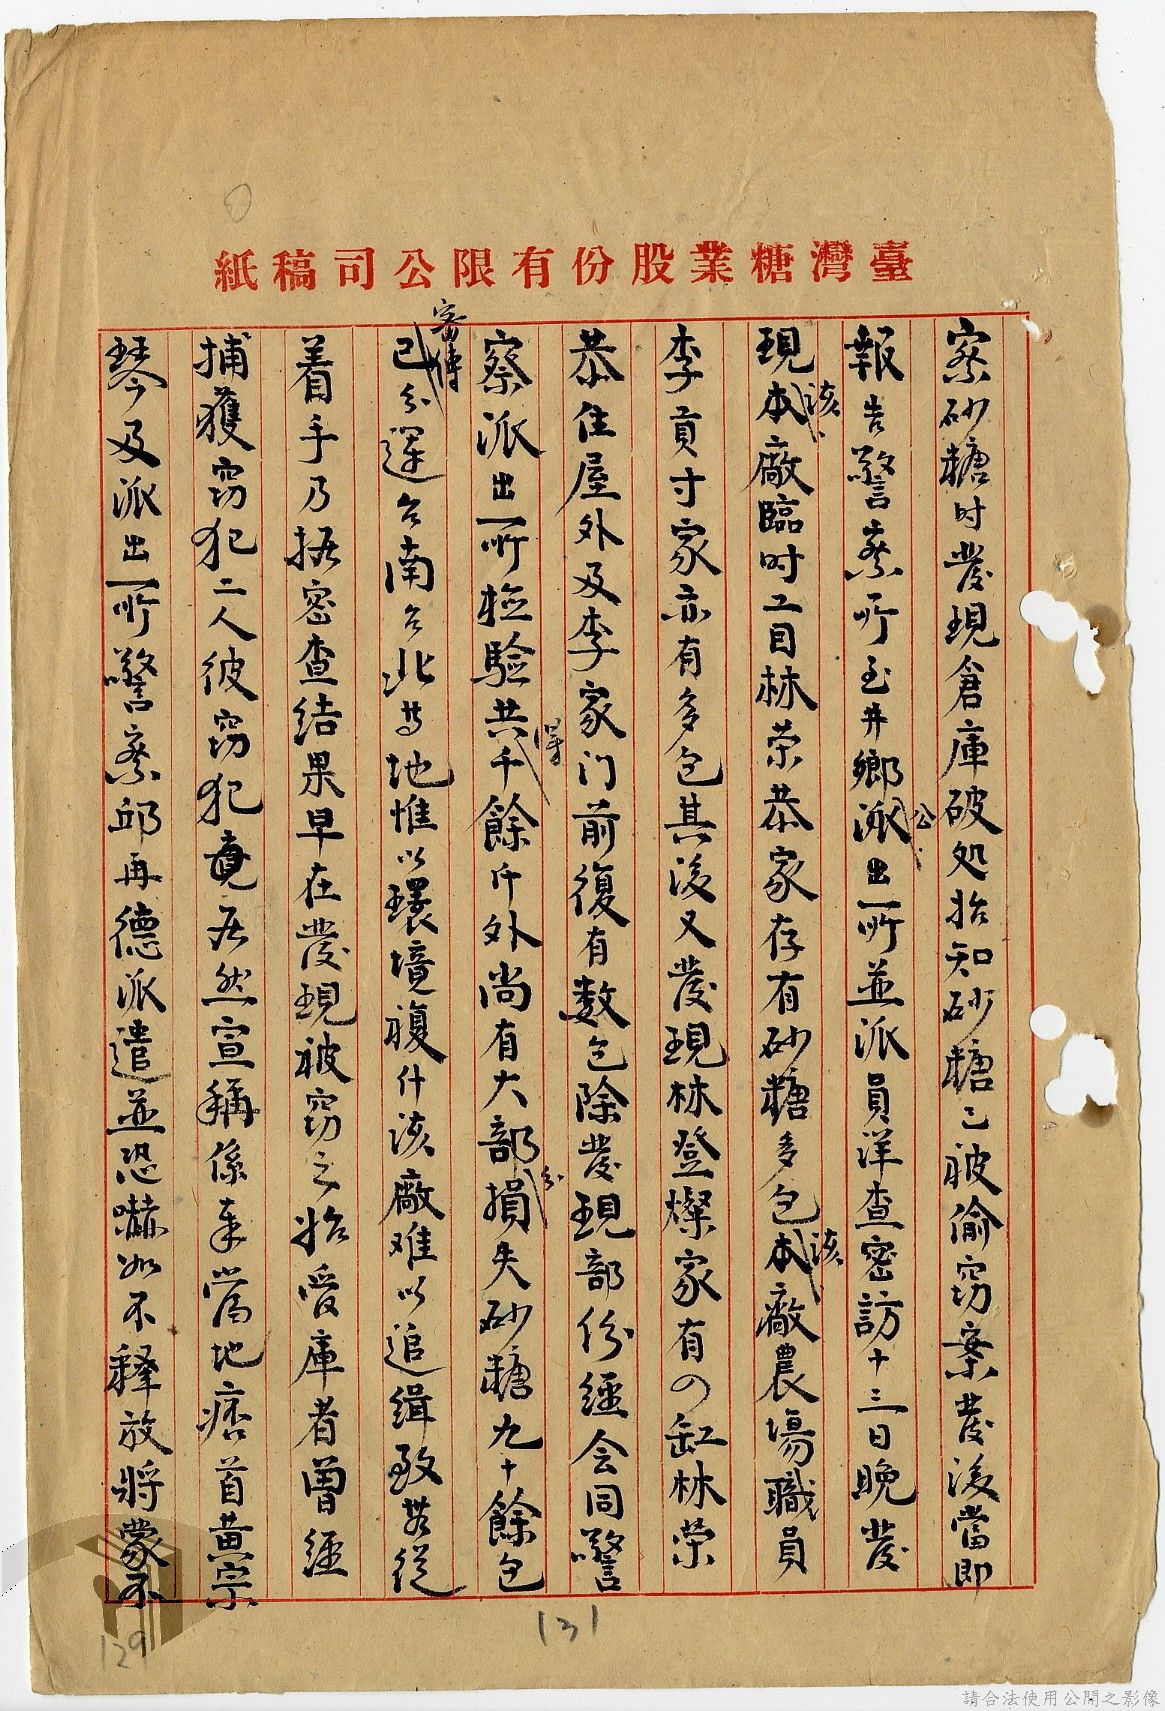 臺灣糖業股份有限公司稿紙
察砂糖时發現倉庫破処始知砂糖已被偷窃案發後當即
報告警察所玉井鄉派出所並派員详查密訪十三日晚發
公
現本廠臨时工目林荣恭家存有砂糖多包本廠農場職員
該
該
李貢寸家亦有多包其後又發現林登燦家有の缸林荣
恭住屋外及李家门前復有数包除發現部份經会同警
察派出所檢驗共千餘斤外尚有大部損失砂糖九十餘包
得
分
已分運台南台北等地惟以環境複什該廠难以追缉致無從
密傳
着手乃据密查结果早在發現被窃之始受庫者曾經
捕獲窃犯二人彼窃犯竟居然宣稱係奉當地痞首黄宗
琴及派出所警察邱再德派遣並恐嚇如不释放將蒙不
131
129
請合法使用公開之影像